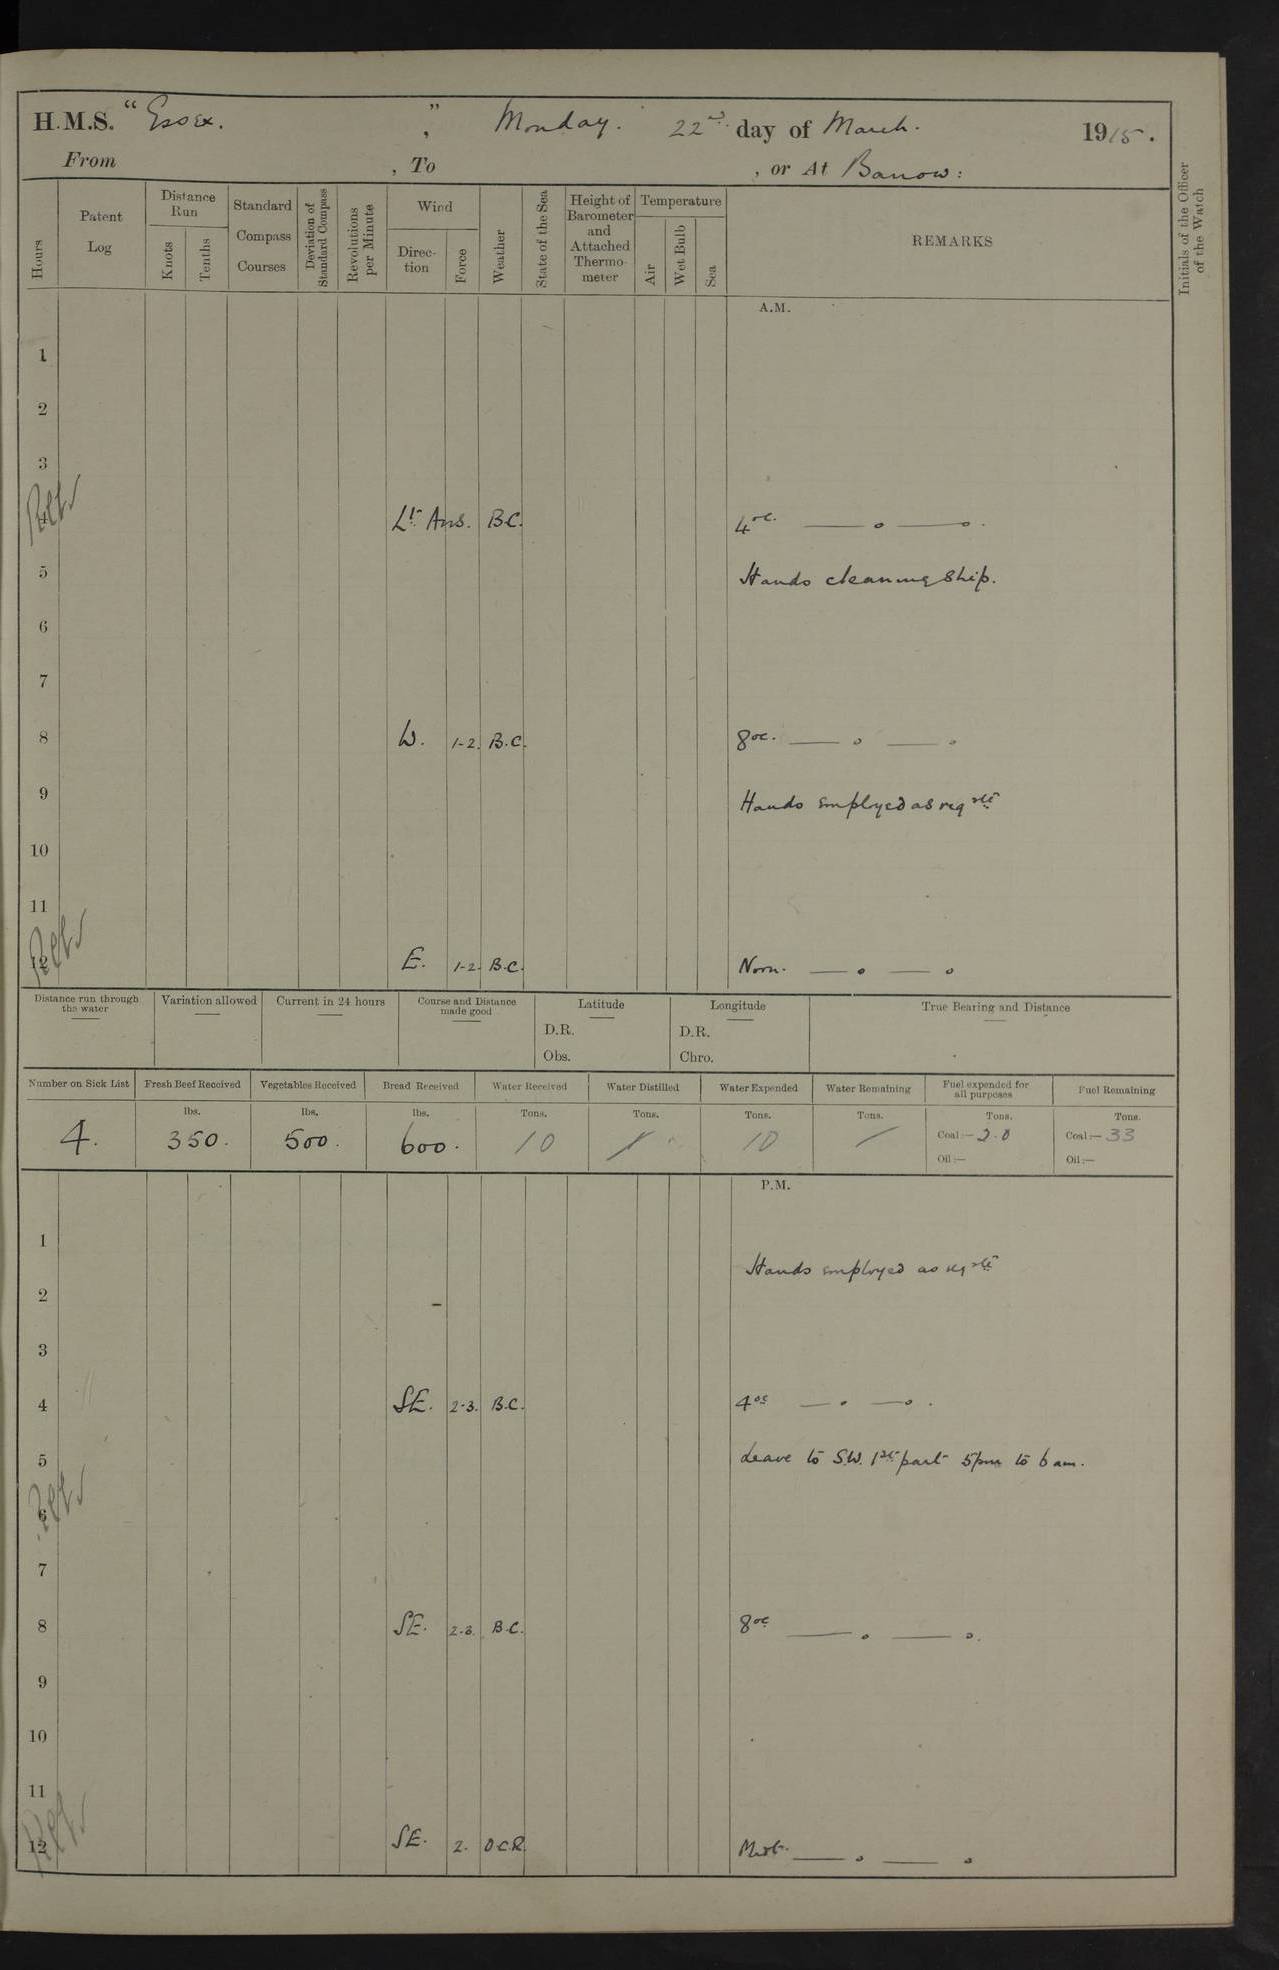 H.M.S. "Essex. ", Monday. 22nd day of March. 1915.
From , To , or At Barrow:
Hours
Patent Log
Distance Run
Knots
Tenths
Standard Compass Courses
Deviation of Standard Compass
Revolutions per Minute
Wind
Direction
Force
Weather
State of the Sea
Height of Barometer and Attached Thermometer
Temperature
Air
Wet Bulb
Sea
REMARKS
Initials of the Officer of the Watch
A.M.
1
2
3
4 Lt Airs. B.C. 4oc. — o — o.
5 Hands cleaning ship.
6
7
8 W. 1-2. B.C. 8oc. — o — o
9 Hands employed as reqste
10
11
12 E. 1-2. B.C. Noon. — o — o
Distance run through the water
Variation allowed
Current in 24 hours
Course and Distance made good
Latitude
D.R.
Obs.
Longitude
D.R.
Chro.
True Bearing and Distance
Number on Sick List
Fresh Beef Received
Vegetables Received
Bread Received
Water Received
Water Distilled
Water Expended
Water Remaining
Fuel expended for all purposes
Fuel Remaining
lbs. lbs. lbs. Tons. Tons. Tons. Tons. Tons. Tons.
4. 350. 500. 600. 10 / 10 / Coal:— 2.0 Coal:— 33
Oil:— Oil:—
P.M.
1
Hands employed as reqste
2
3
4 SE. 2-3. B.C. 4oc — o — o.
5 Leave to S.W. 1st part 5pm to 6am.
6
7
8 SE. 2-3. B.C. 8oc — o — o.
9
10
11
12 SE. 2. O.C.R. Midt. — o — o